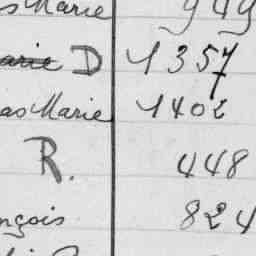 s Marie 949
arie D 1357
as Marie 1402
R. 448
nçois 824